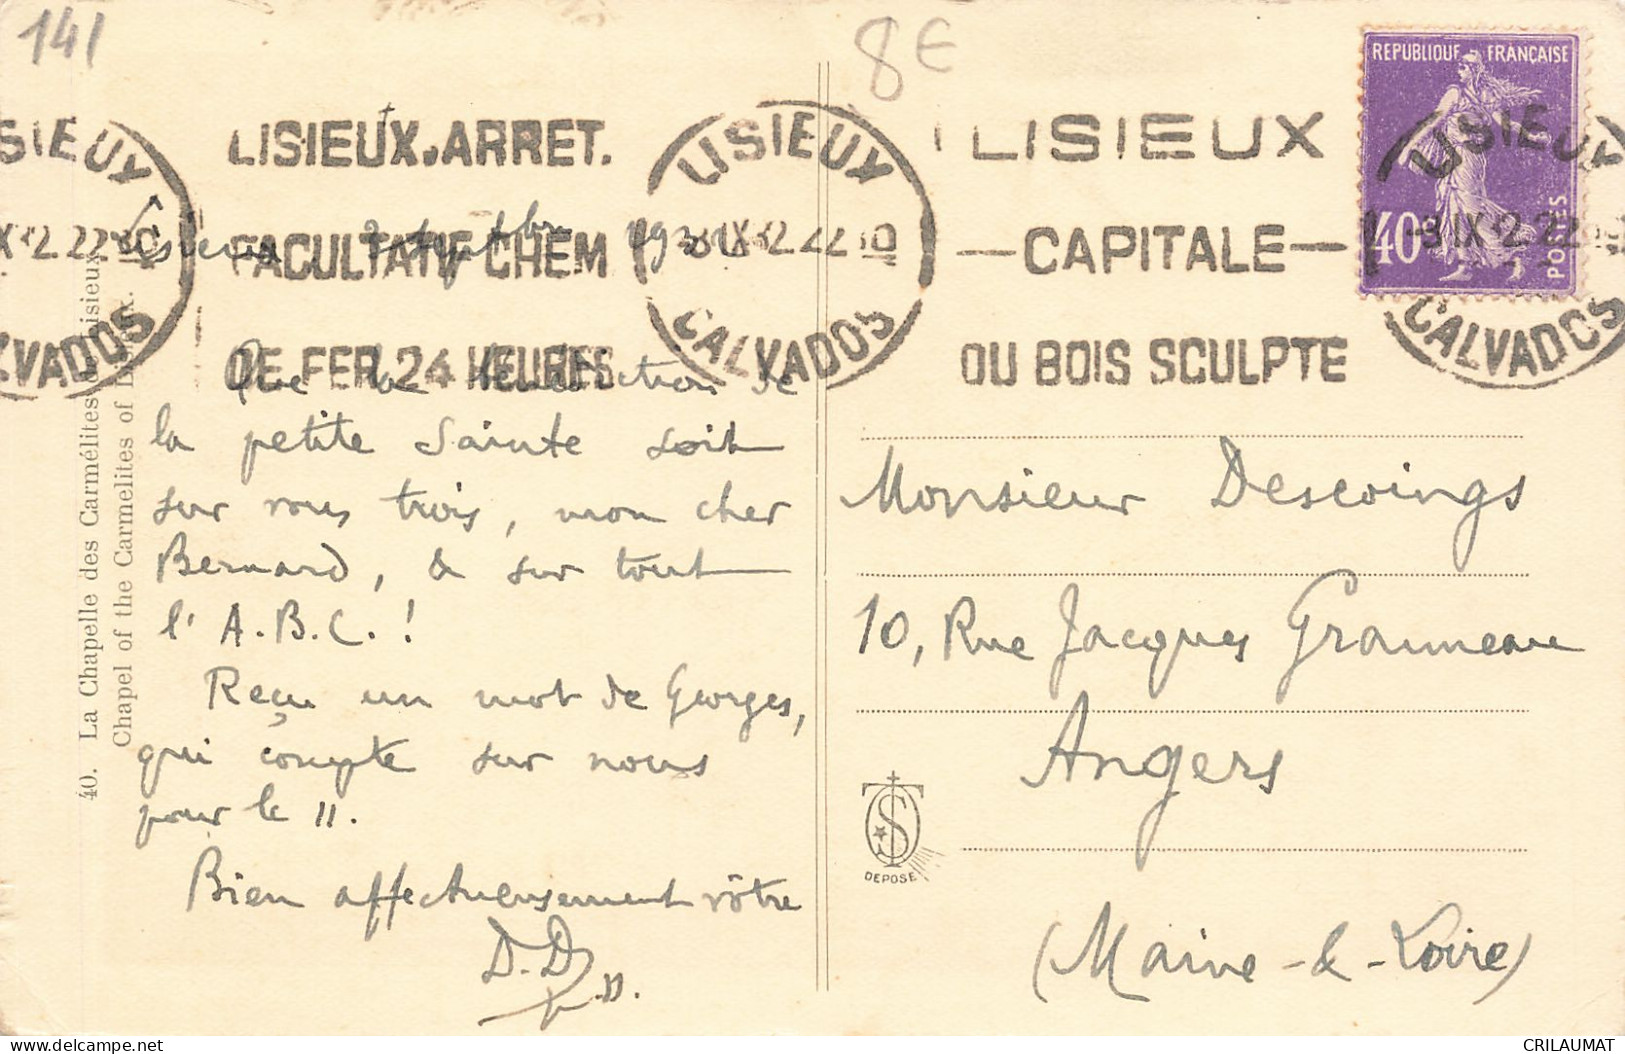 141
8€
REPUBLIQUE FRANÇAISE
40c
POSTES
LISIEUX.ARRET.
FACULTATIF CHEM
DE FER.24 HEURES
LISIEUX
CALVADOS
LISIEUX
—CAPITALE—
DU BOIS SCULPTE
LISIEUX
-3 IX 32.22
CALVADOS
Lisieux 3 septembre 1932
40. La Chapelle des Carmélites de Lisieux.
Chapel of the Carmelites of Lisieux.
Que la bénédiction de
la petite Sainte soit
sur vous trois, mon cher
Bernard, & sur tout
l'A.B.C.!
Reçu un mot de Georges,
qui compte sur nous
pour le 11.
Bien affectueusement vôtre
D.D.
Monsieur Descoings
10, Rue Jacques Granneau
Angers
(Maine-&-Loire)
DEPOSE
delcampe.net
CRILAUMAT